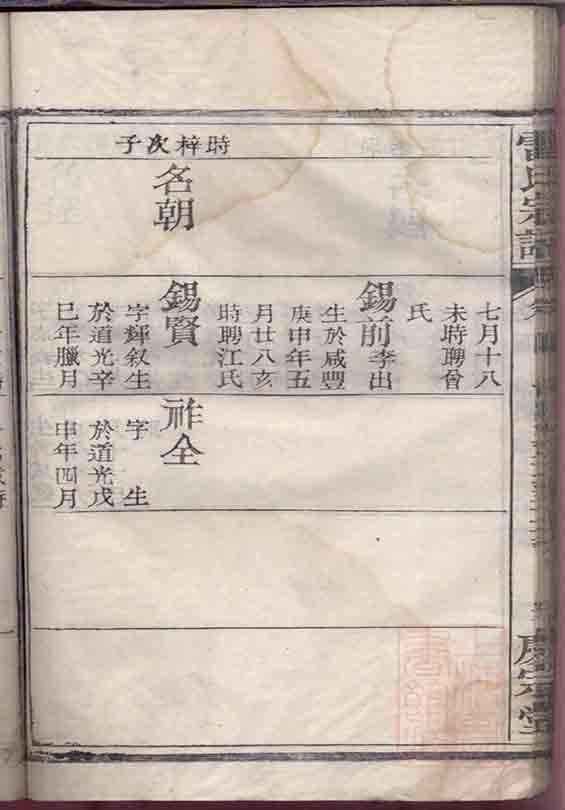 雷氏宗譜
時梓次子
名朝
七月十八
未時聘曾
氏
錫前李出
生於咸豐
庚申年五
月廿八亥
時聘江氏
錫賢
字輝敘生
於道光辛
巳年臘月
祚全
字 生
於道光戊
申年四月